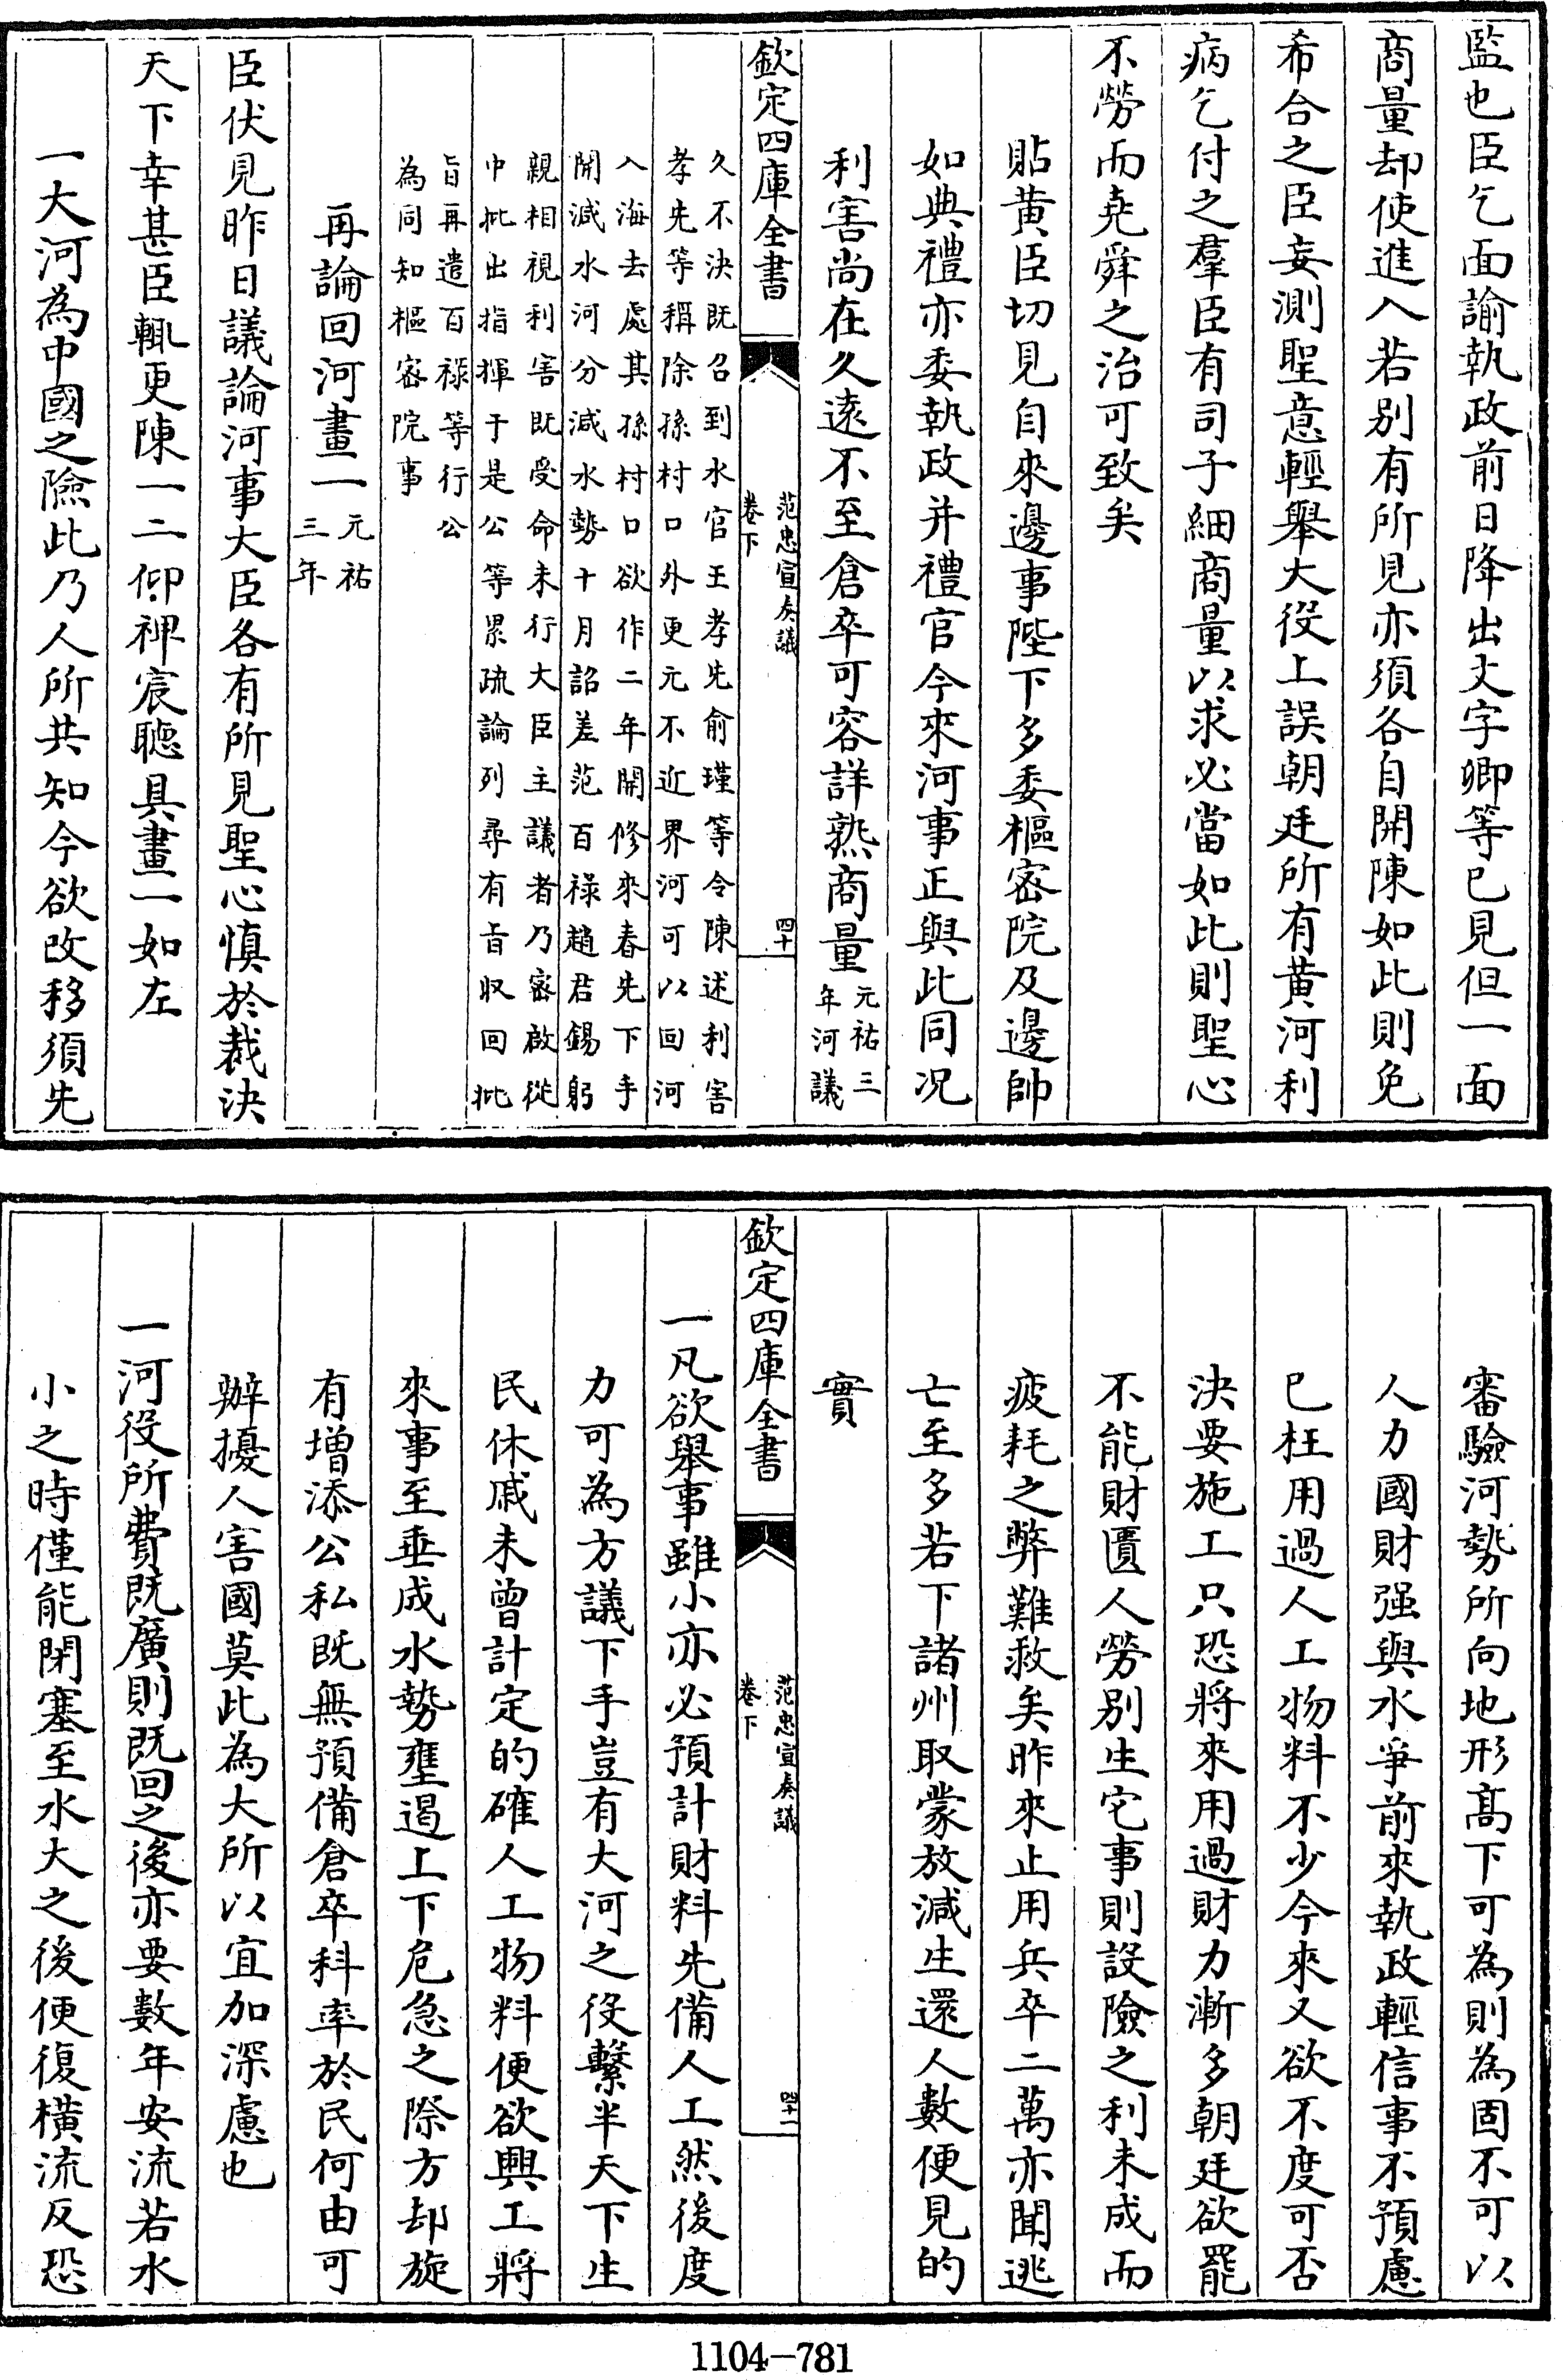 監也臣乞面諭執政前日降出文字卿等已見但一面
商量却使進入若別有所見亦須各自開陳如此則免
希合之臣妄測聖意輕舉大役上誤朝廷所有黃河利
病乞付之羣臣有司子細商量以求必當如此則聖心
不勞而堯舜之治可致矣
貼黃臣切見自來邊事陛下多委樞密院及邊帥
如典禮亦委執政并禮官今來河事正與此同况
利害尚在久遠不至倉卒可容詳熟商量元祐三
年河議
欽定四庫全書
范忠宣奏議
卷下
四十
久不決既召到水官王孝先俞瑾等令陳述利害
孝先等稱除孫村口外更元不近界河可以回河
入海去處其孫村口欲作二年開修來春先下手
開減水河分減水勢十月詔差范百祿趙君錫躬
親相視利害既受命未行大臣主議者乃密啟從
中批出指揮于是公等累疏論列尋有旨收回批
旨再遣百祿等行公
為同知樞密院事
再論回河畫一元祐
三年
臣伏見昨日議論河事大臣各有所見聖心慎於裁決
天下幸甚臣輒更陳一二仰裨宸聽具畫一如左
一大河為中國之險此乃人所共知今欲改移須先
審驗河勢所向地形髙下可為則為固不可以
人力國財强與水爭前來執政輕信事不預慮
已枉用過人工物料不少今來又欲不度可否
決要施工只恐將來用過財力漸多朝廷欲罷
不能財匱人勞別生它事則設險之利未成而
疲耗之弊難救矣昨來止用兵卒二萬亦聞逃
亡至多若下諸州取蒙放減生還人數便見的
實
欽定四庫全書
范忠宣奏議
卷下
四十一
一凡欲舉事雖小亦必預計財料先備人工然後度
力可為方議下手豈有大河之役繫半天下生
民休戚未曾計定的確人工物料便欲興工將
來事至垂成水勢壅遏上下危急之際方却旋
有增添公私既無預備倉卒科率於民何由可
辦擾人害國莫此為大所以宜加深慮也
一河役所費既廣則既回之後亦要數年安流若水
小之時僅能閉塞至水大之後便復橫流反恐
1104-781